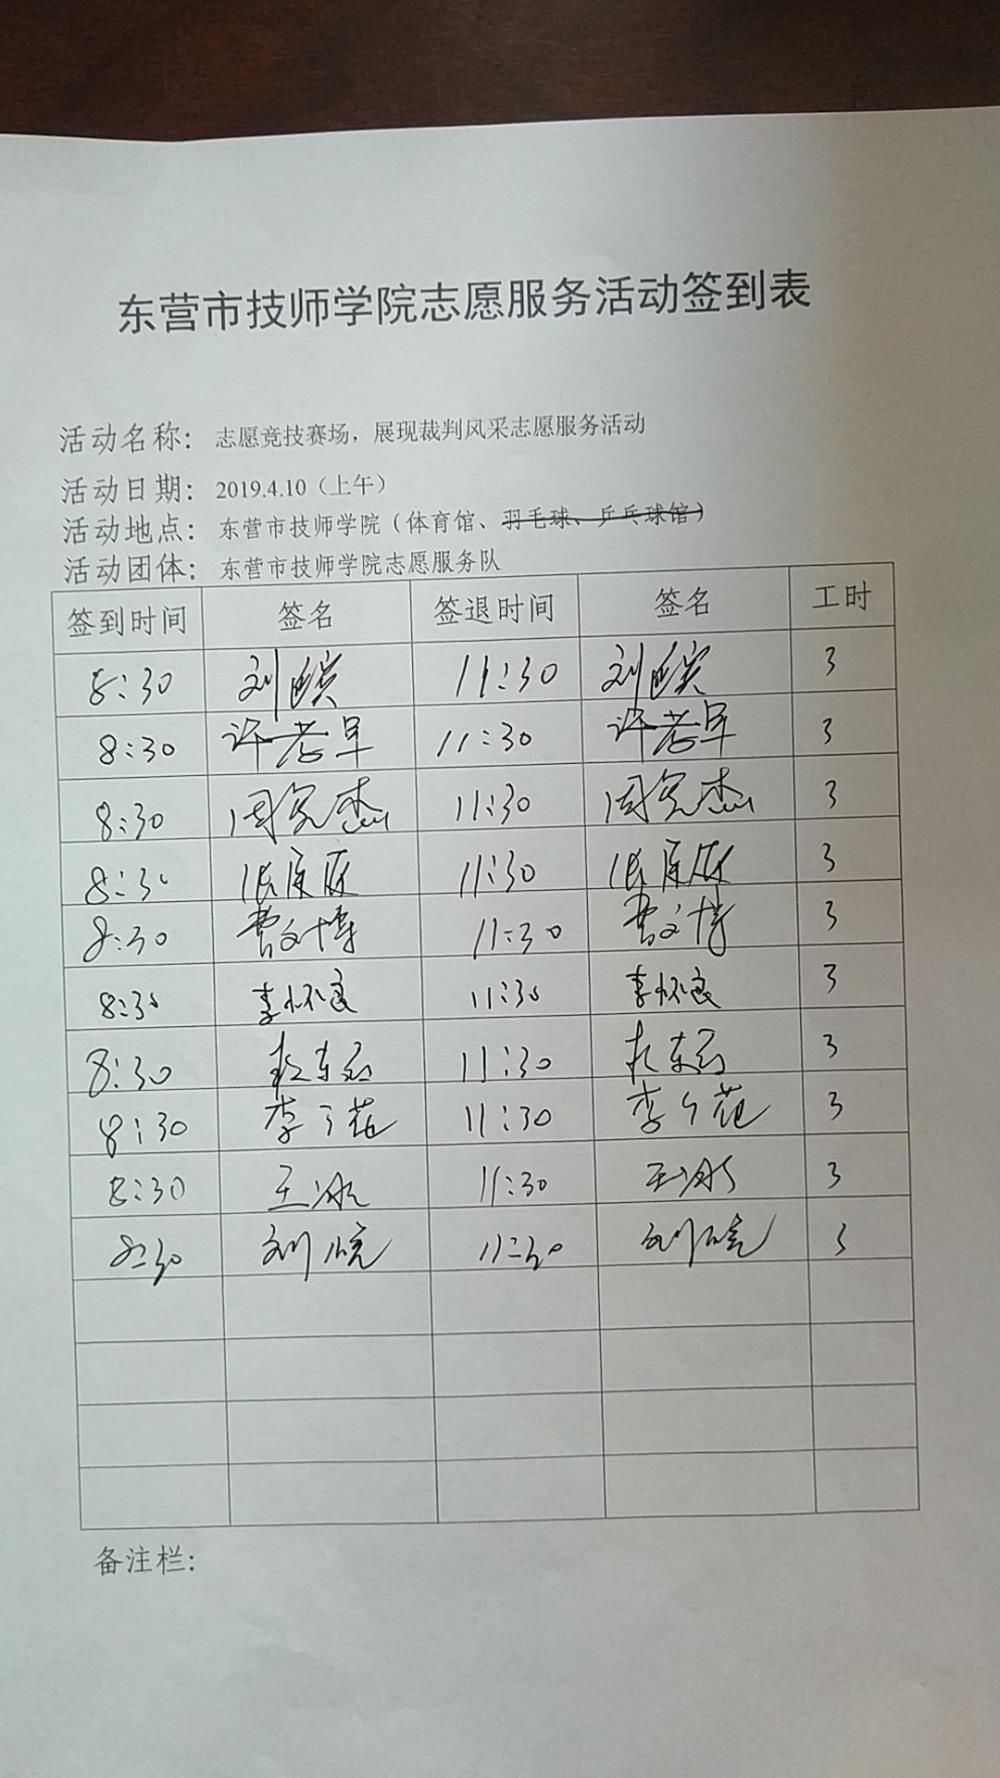 东营市技师学院志愿服务活动签到表
活动名称：志愿竞技赛场，展现裁判风采志愿服务活动
活动日期：2019.4.10（上午）
活动地点：东营市技师学院（体育馆、羽毛球、乒乓球馆）
活动团体：东营市技师学院志愿服务队
签到时间 签名 签退时间 签名 工时
8:30 刘 11:30 刘 3
8:30 许孝早 11:30 许孝早 3
8:30 周宪杰 11:30 周宪杰 3
8:30 张 11:30 张 3
8:30 曹文博 11:30 曹文博 3
8:30 李怀良 11:30 李怀良 3
8:30 11:30 3
8:30 李 花 11:30 李 花 3
8:30 王冰 11:30 王冰 3
8:30 刘 11:30 刘 3
备注栏：